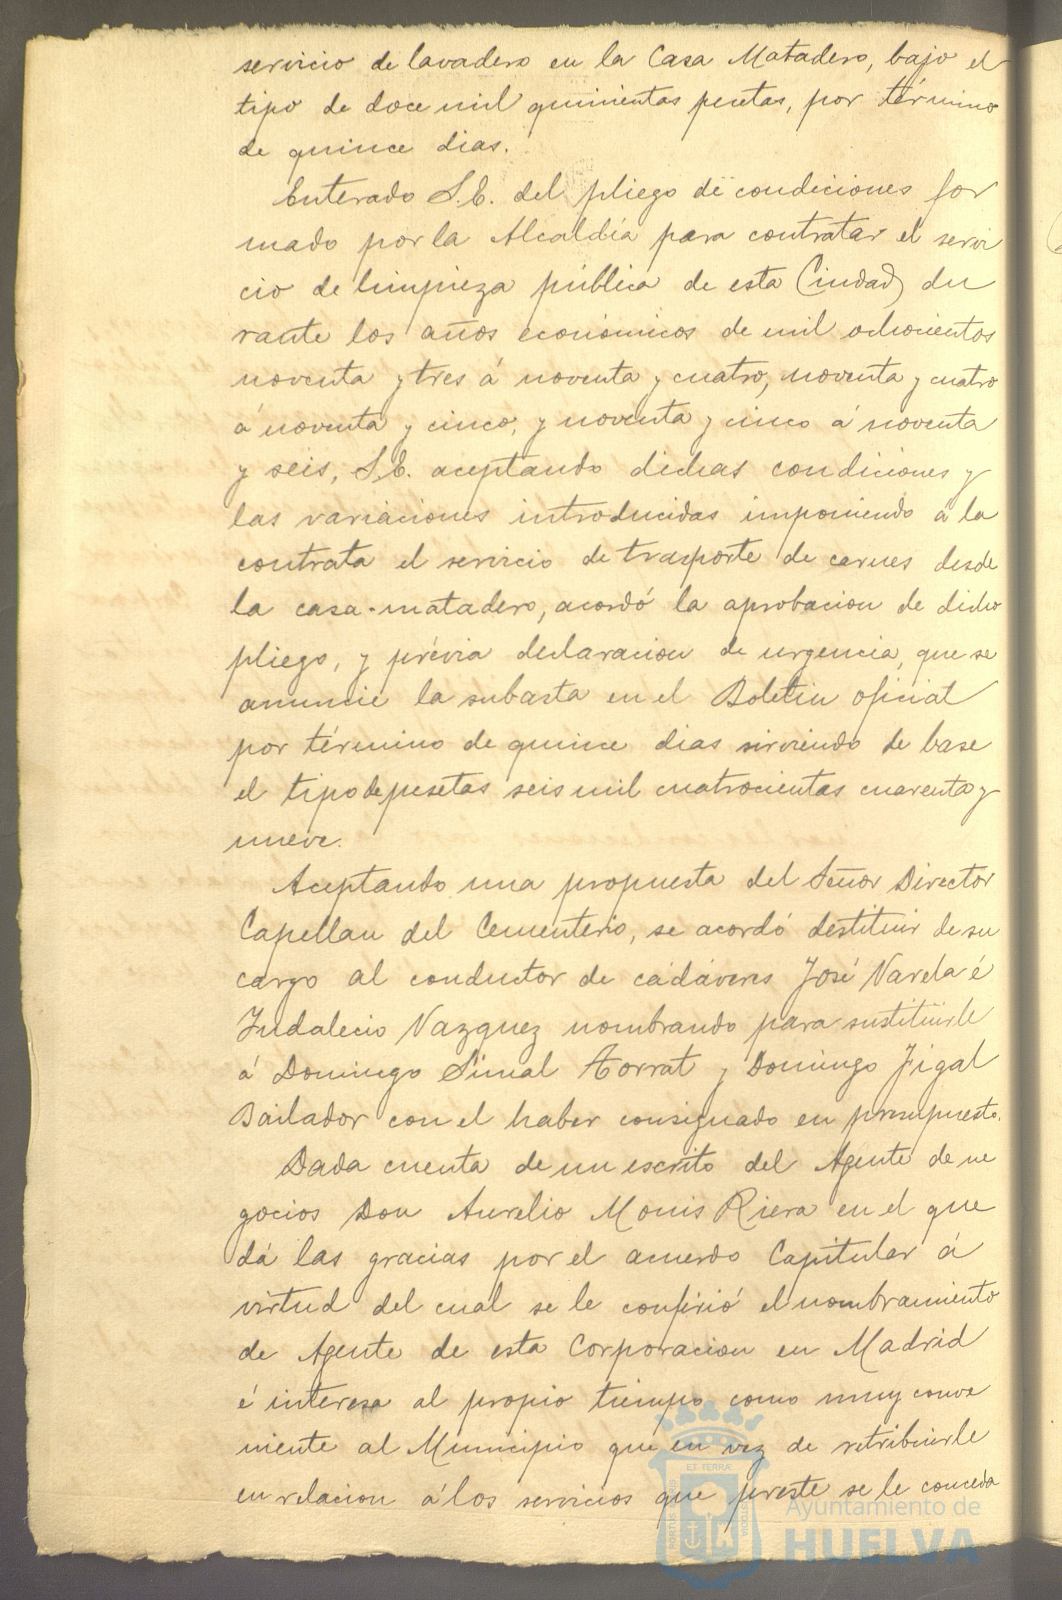 servicio de lavadero en la Casa Matadero, bajo el
tipo de doce mil quinientas pesetas, por término
de quince dias.
Enterado S.E. del pliego de condiciones for
mado por la Alcaldía para contratar el servi
cio de limpieza pública de esta Ciudad du
rante los años económicos de mil ochocientos
noventa y tres á noventa y cuatro, noventa y cuatro
á noventa y cinco, y noventa y cinco á noventa
y seis, S.E. aceptando dichas condiciones y
las variaciones introducidas imponiendo á la
contrata el servicio de trasporte de carnes desde
la casa-matadero, acordó la aprobacion de dicho
pliego, y prévia declaracion de urgencia, que se
anuncie la subasta en el Boletin oficial
por término de quince dias sirviendo de base
el tipo de pesetas seis mil cuatrocientas cuarenta y
nueve.
Aceptando una propuesta del Señor Director
Capellan del Cementerio, se acordó destituir de su
cargo al conductor de cadáveres José Varela é
Indalecio Vazquez nombrando para sustituirle
á Domingo Simal Torrat y Domingo Figal
Bailador con el haber consignado en presupuesto.
Dada cuenta de un escrito del Agente de ne
gocios Don Aurelio Monis Riera en el que
dá las gracias por el acuerdo Capitular á
virtud del cual se le confirió el nombramiento
de Agente de esta Corporacion en Madrid
é interesa al propio tiempo como muy conve
niente al Municipio que en vez de retribuirle
en relacion á los servicios que preste se le conceda
ET TERRÆ
PORTUS MARIS
CUSTODIA
Ayuntamiento de
HUELVA